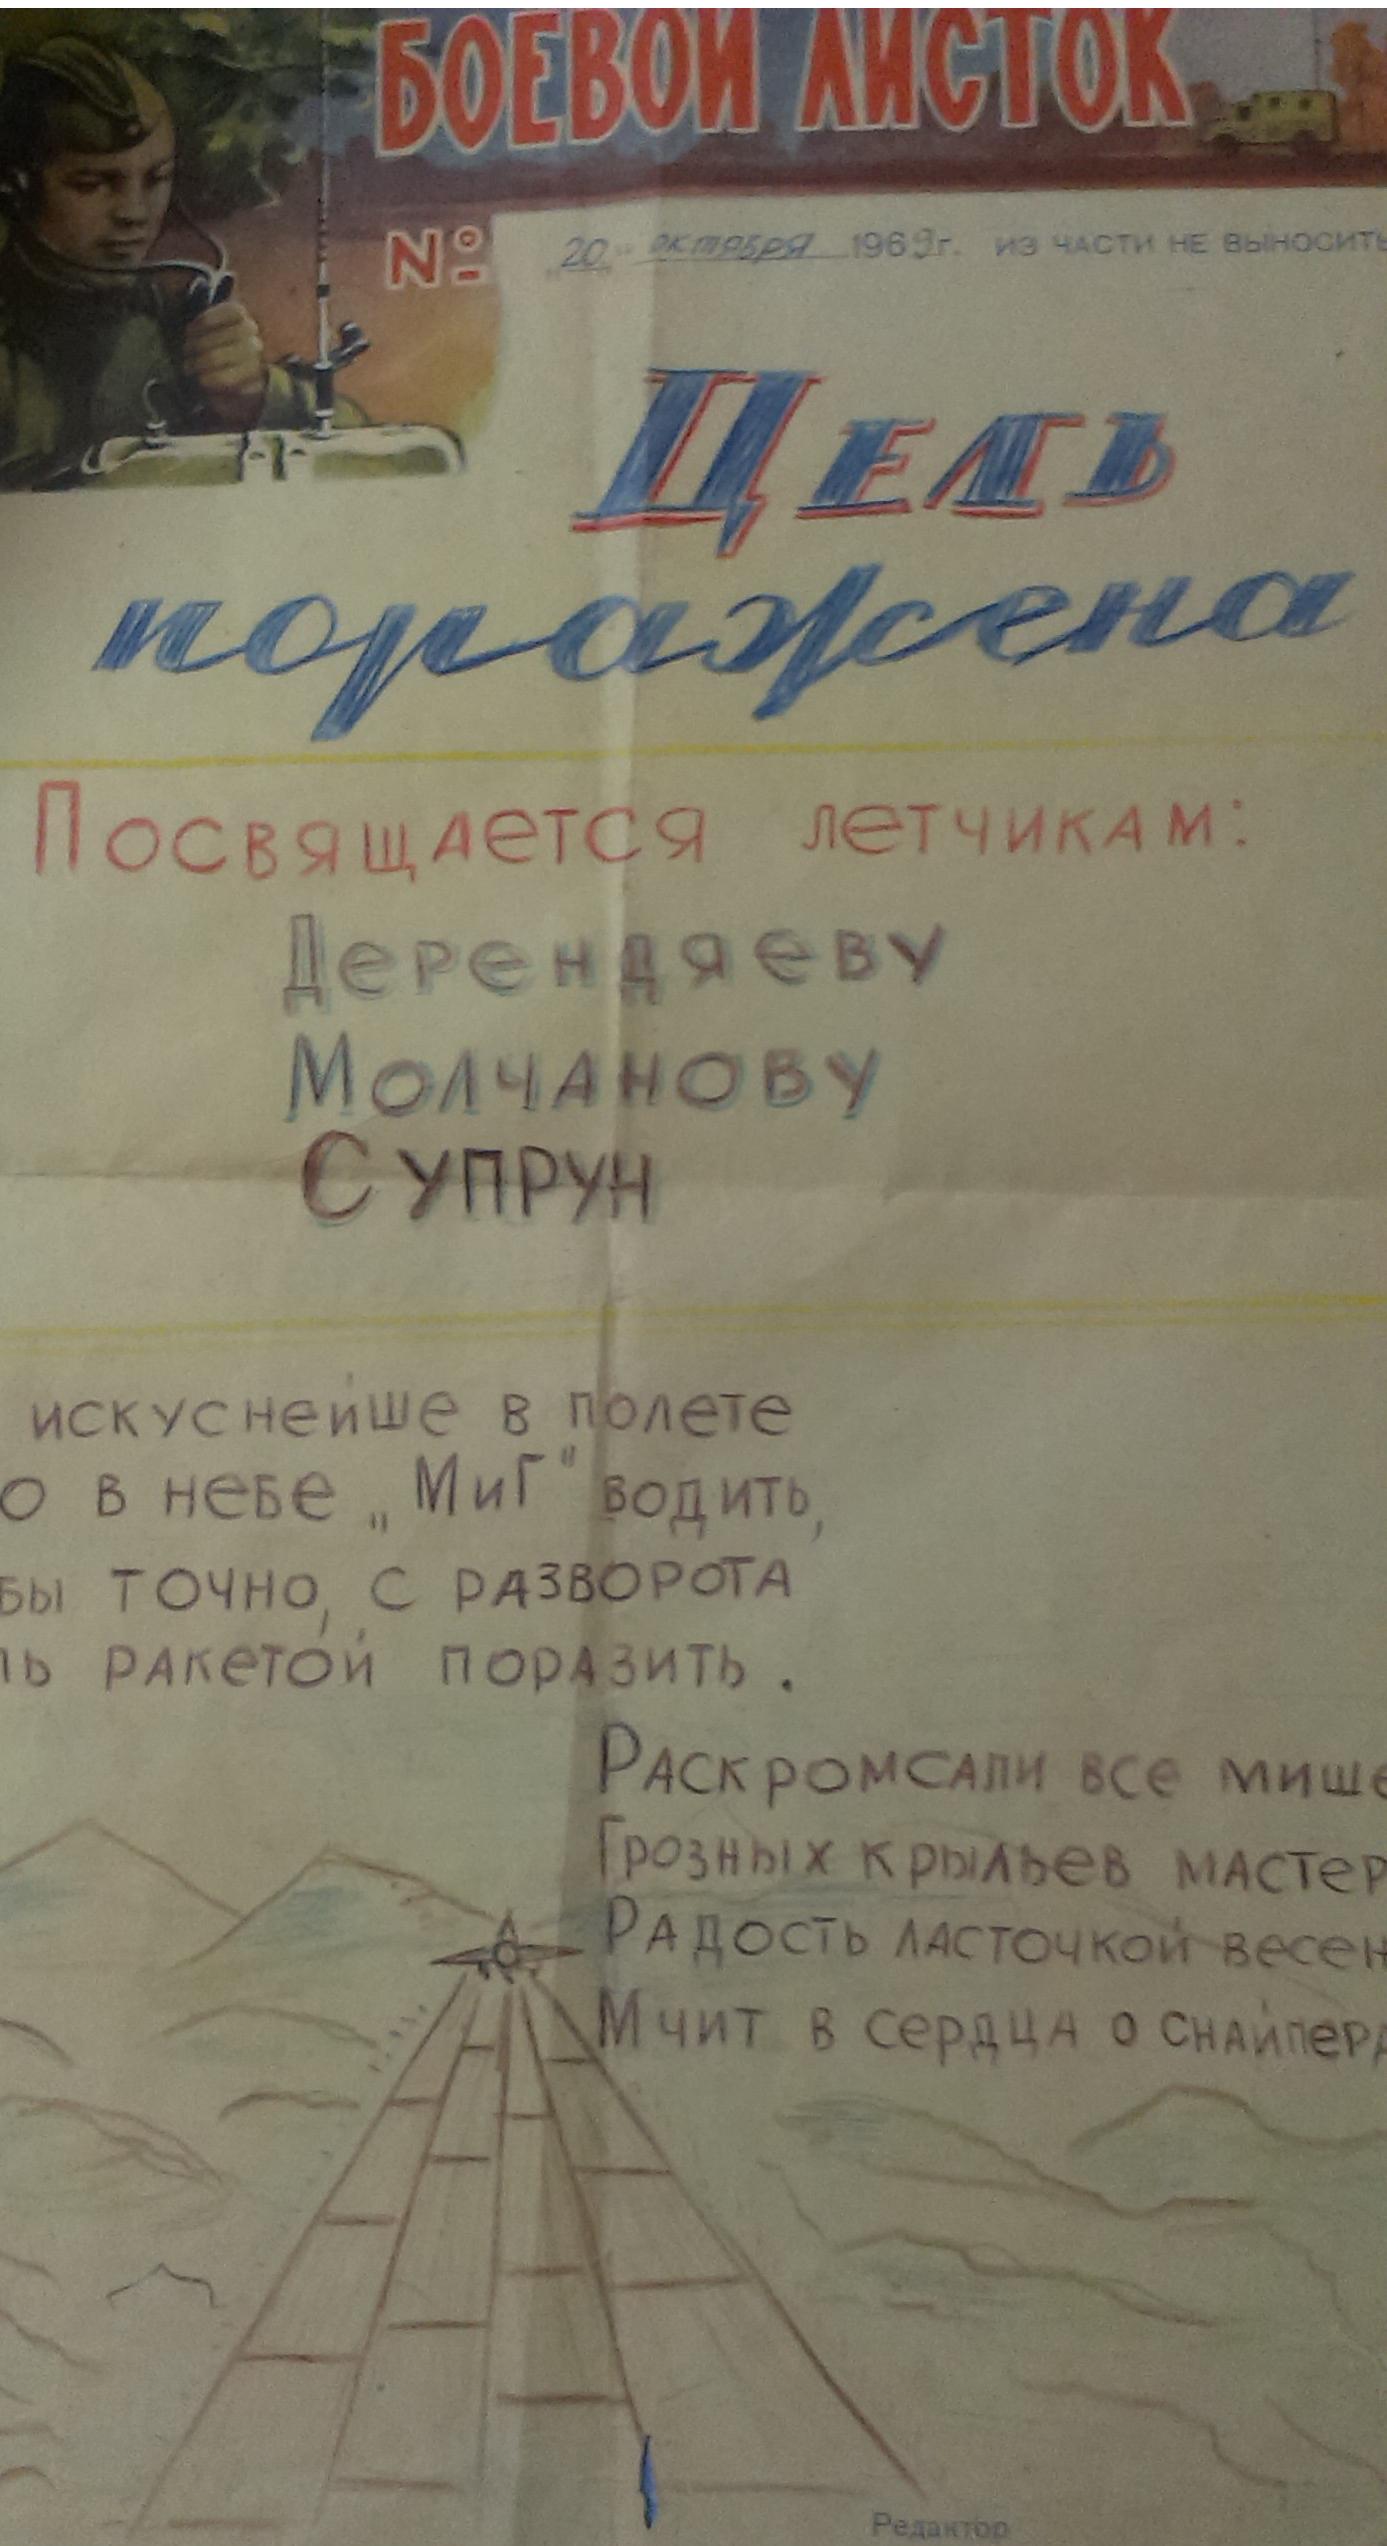 БОЕВОЙ ЛИСТОК
№ „20" октября 1969г. ИЗ ЧАСТИ НЕ ВЫНОСИТЬ
Цель
поражена
Посвящается летчикам:
Дерендяеву
Молчанову
Супрун
искуснейше в полете
о в небе „МиГ" водить,
бы точно, с разворота
ль ракетой поразить.
Раскромсали все мише
Грозных крыльев мастер
Радость ласточкой весен
Мчит в сердца о снайпера
Редактор